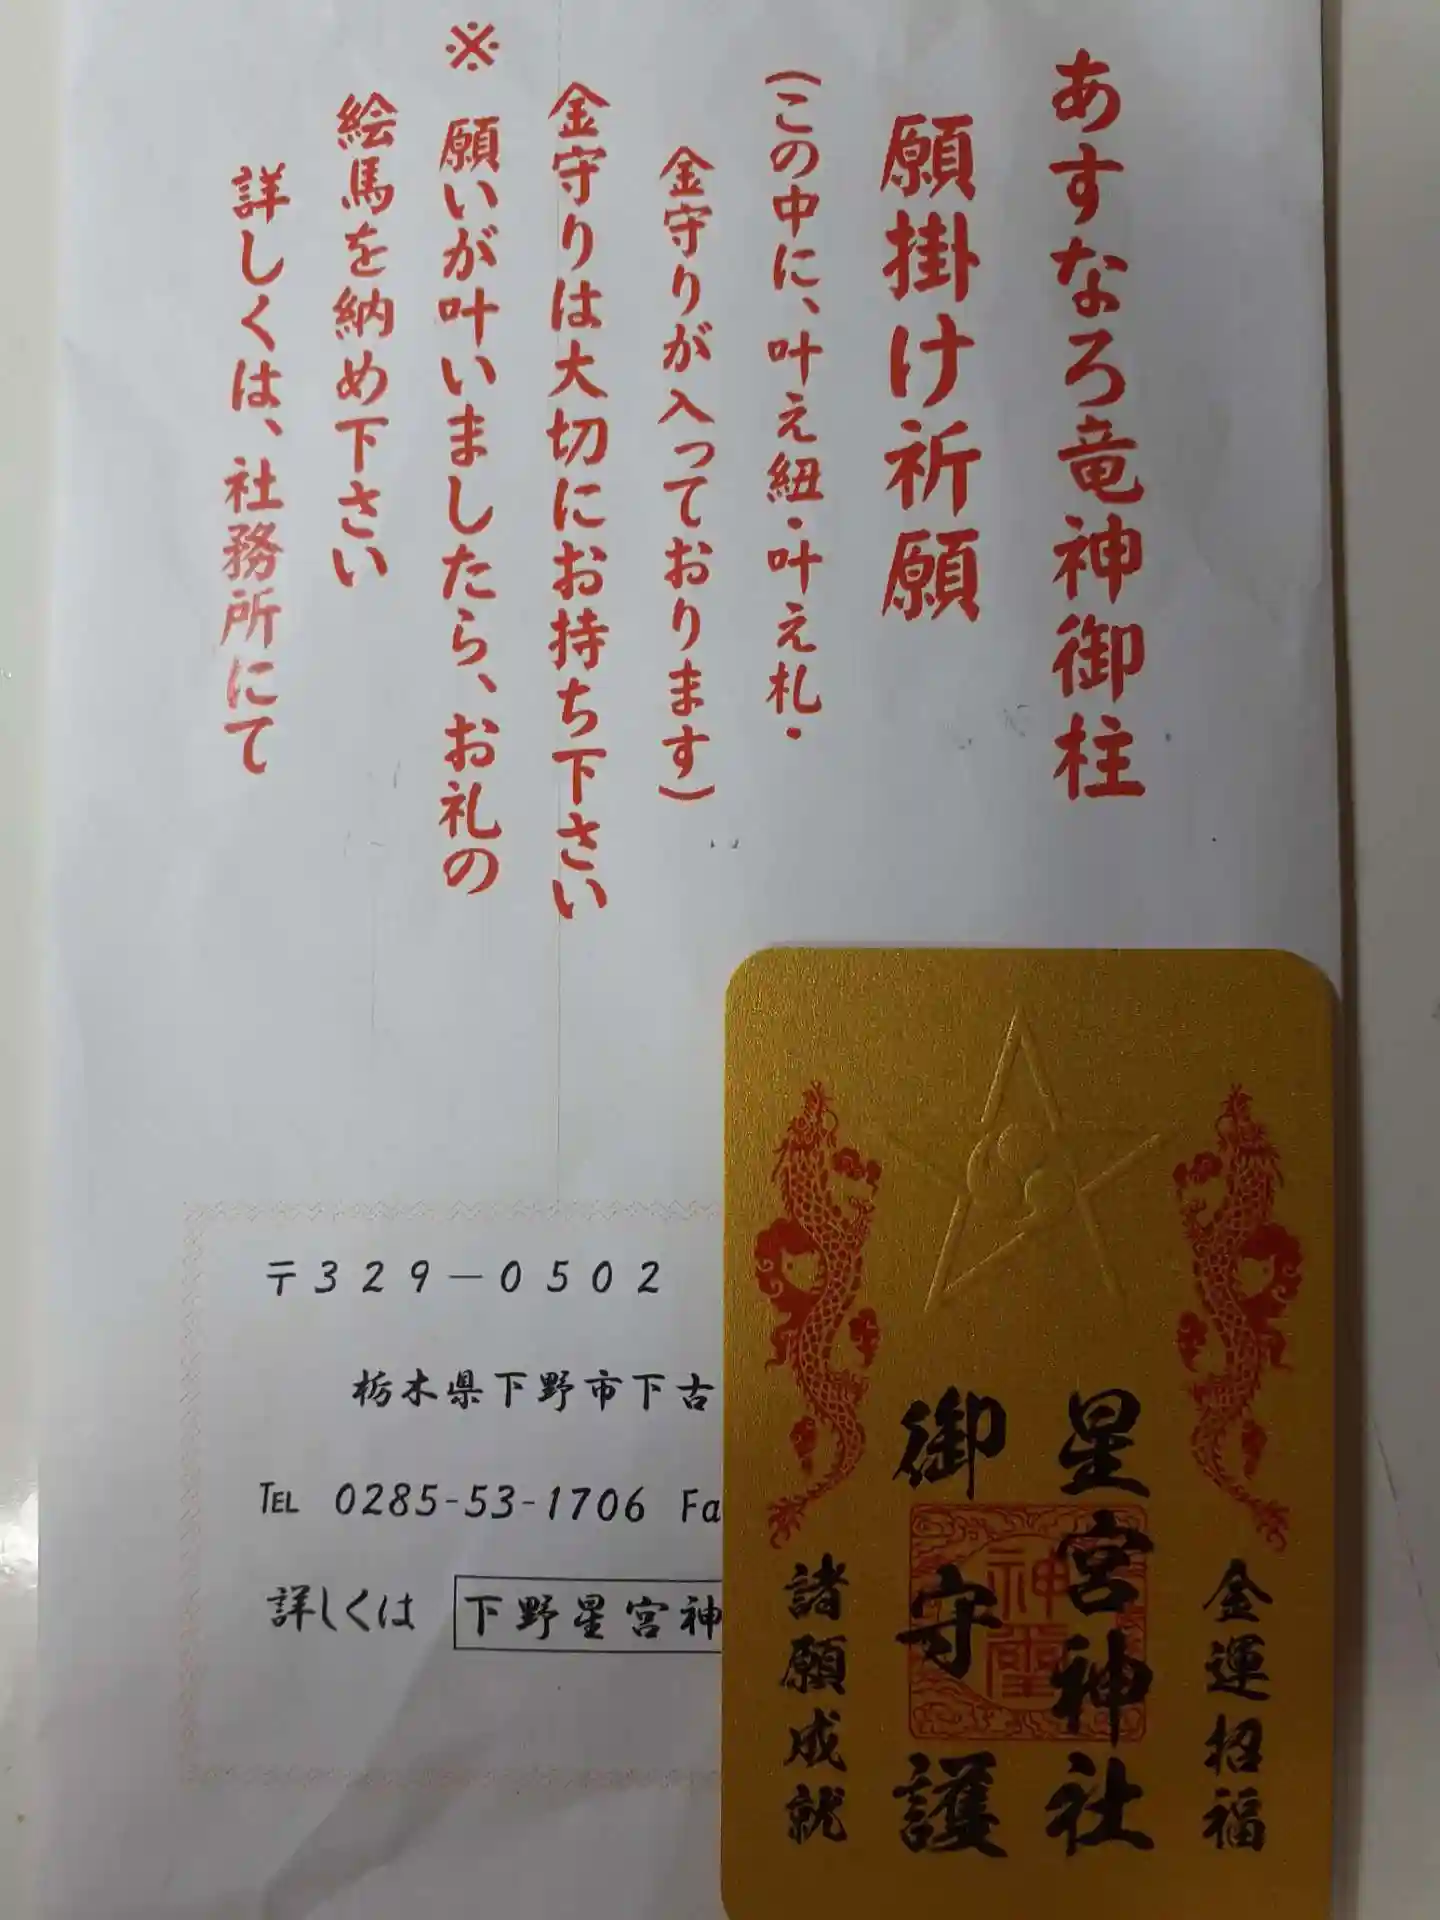 あすなろ竜神御柱
願掛け祈願
(この中に、叶え紐・叶え札・
金守りが入っております)
金守りは大切にお持ち下さい
※ 願いが叶いましたら、お礼の
絵馬を納め下さい
詳しくは、社務所にて
〒329-0502
栃木県下野市下古
TEL 0285-53-1706 Fa
詳しくは 下野星宮神
金運招福
星宮神社
御守護
諸願成就
神璽